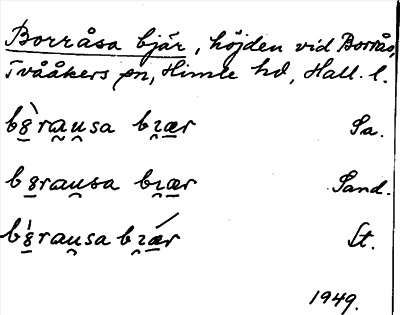 Borråsa bjär, höjden vid Borrås,
Tvååkers sn, Himle hd, Hall. l.
bɞ̲̀ra̰ṵsa bɪ̯æ̲r Sa.
bɞ̲raṵsa bɪ̯æ̲r Sand.
bɞ̲̀raṵsa bɪ̯ǽ̲r St.
1949.